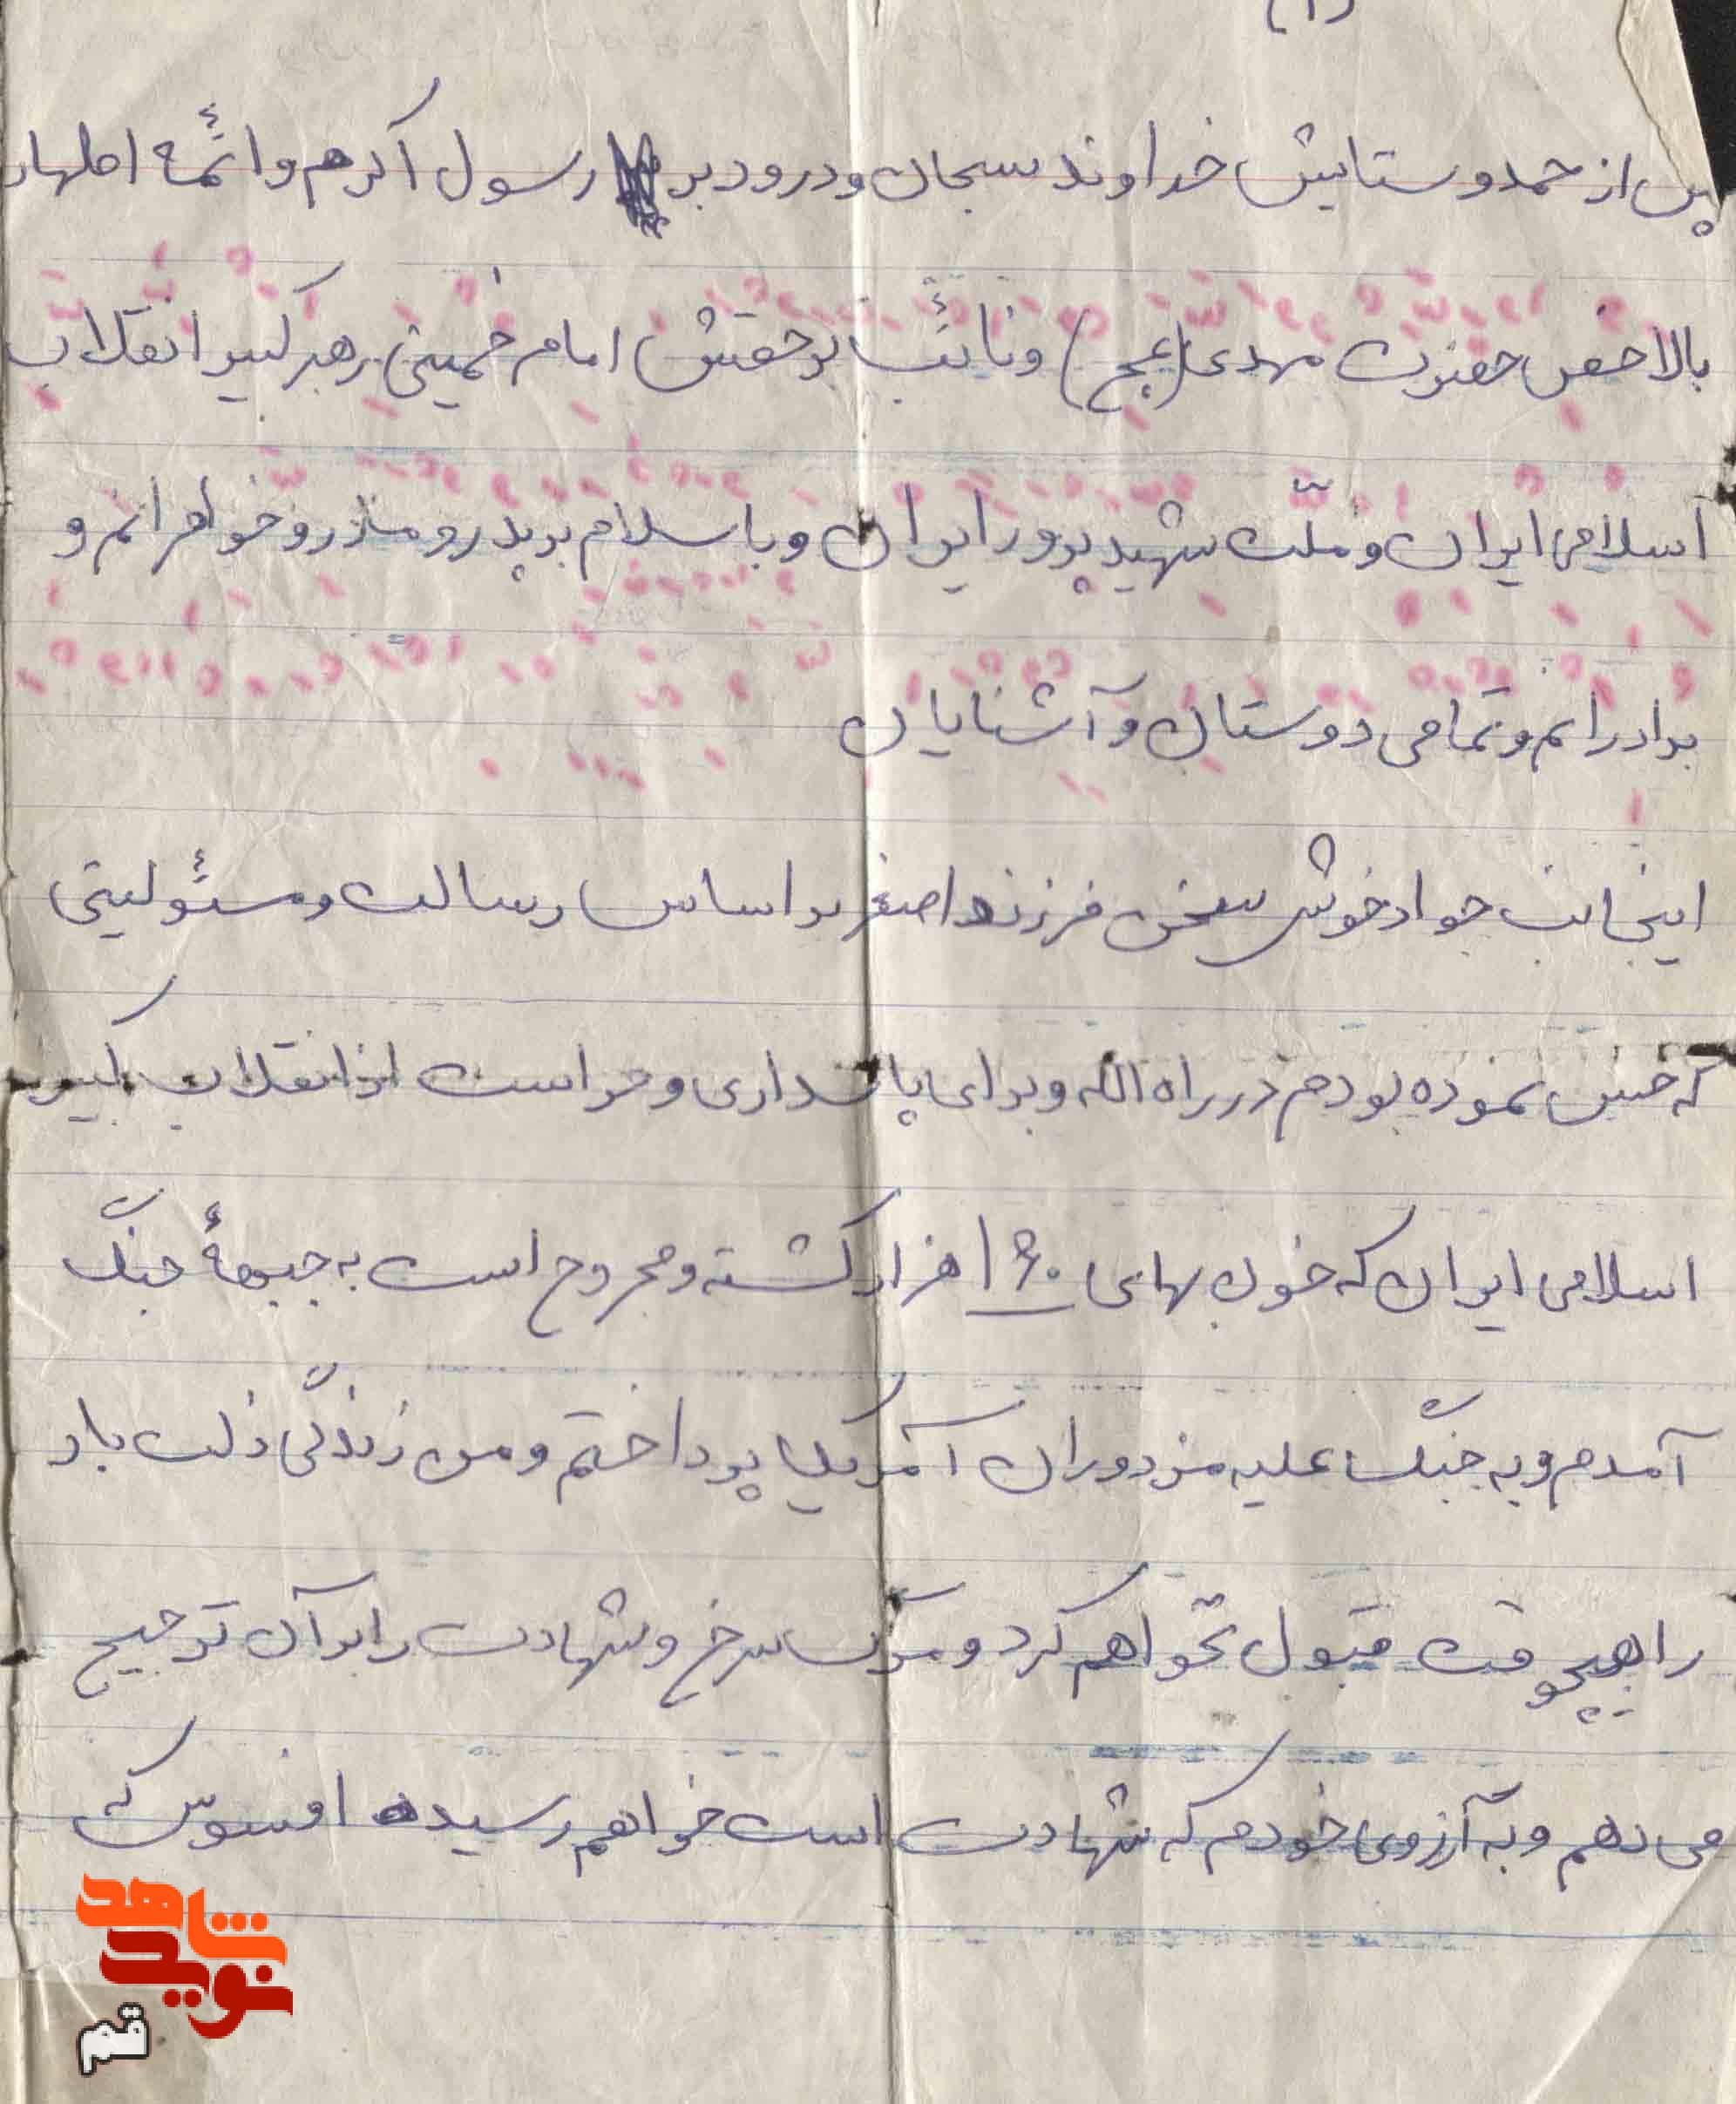 (۱)
پس از حمد و ستایش خداوند سبحان و درود بر رسول اکرم و ائمّه اطهار
بالاخص حضرت مهدی (عج) و نائب برحقش امام خمینی رهبر کبیر انقلاب
اسلامی ایران و ملّت شهید پرور ایران و با سلام بر پدر و مادر و خواهرانم و
برادرانم و تمامی دوستان و آشنایان
اینجانب جواد خوش سخن فرزند اصغر بر اساس رسالت و مسئولیتی
که حس نموده بودم در راه الله و برای پاسداری و حراست از انقلاب کبیر
اسلامی ایران که خون بهای ۱۶۰ هزار کشته و مجروح است به جبههٔ جنگ
آمدم و به جنگ علیه مزدوران آمریکا پرداختم و من زندگی ذلت بار
را هیچوقت قبول نخواهم کرد و مرگ سرخ و شهادت را بر آن ترجیح
می دهم و به آرزوی خودم که شهادت است خواهم رسید افسوس که
نوید شاهد
قم